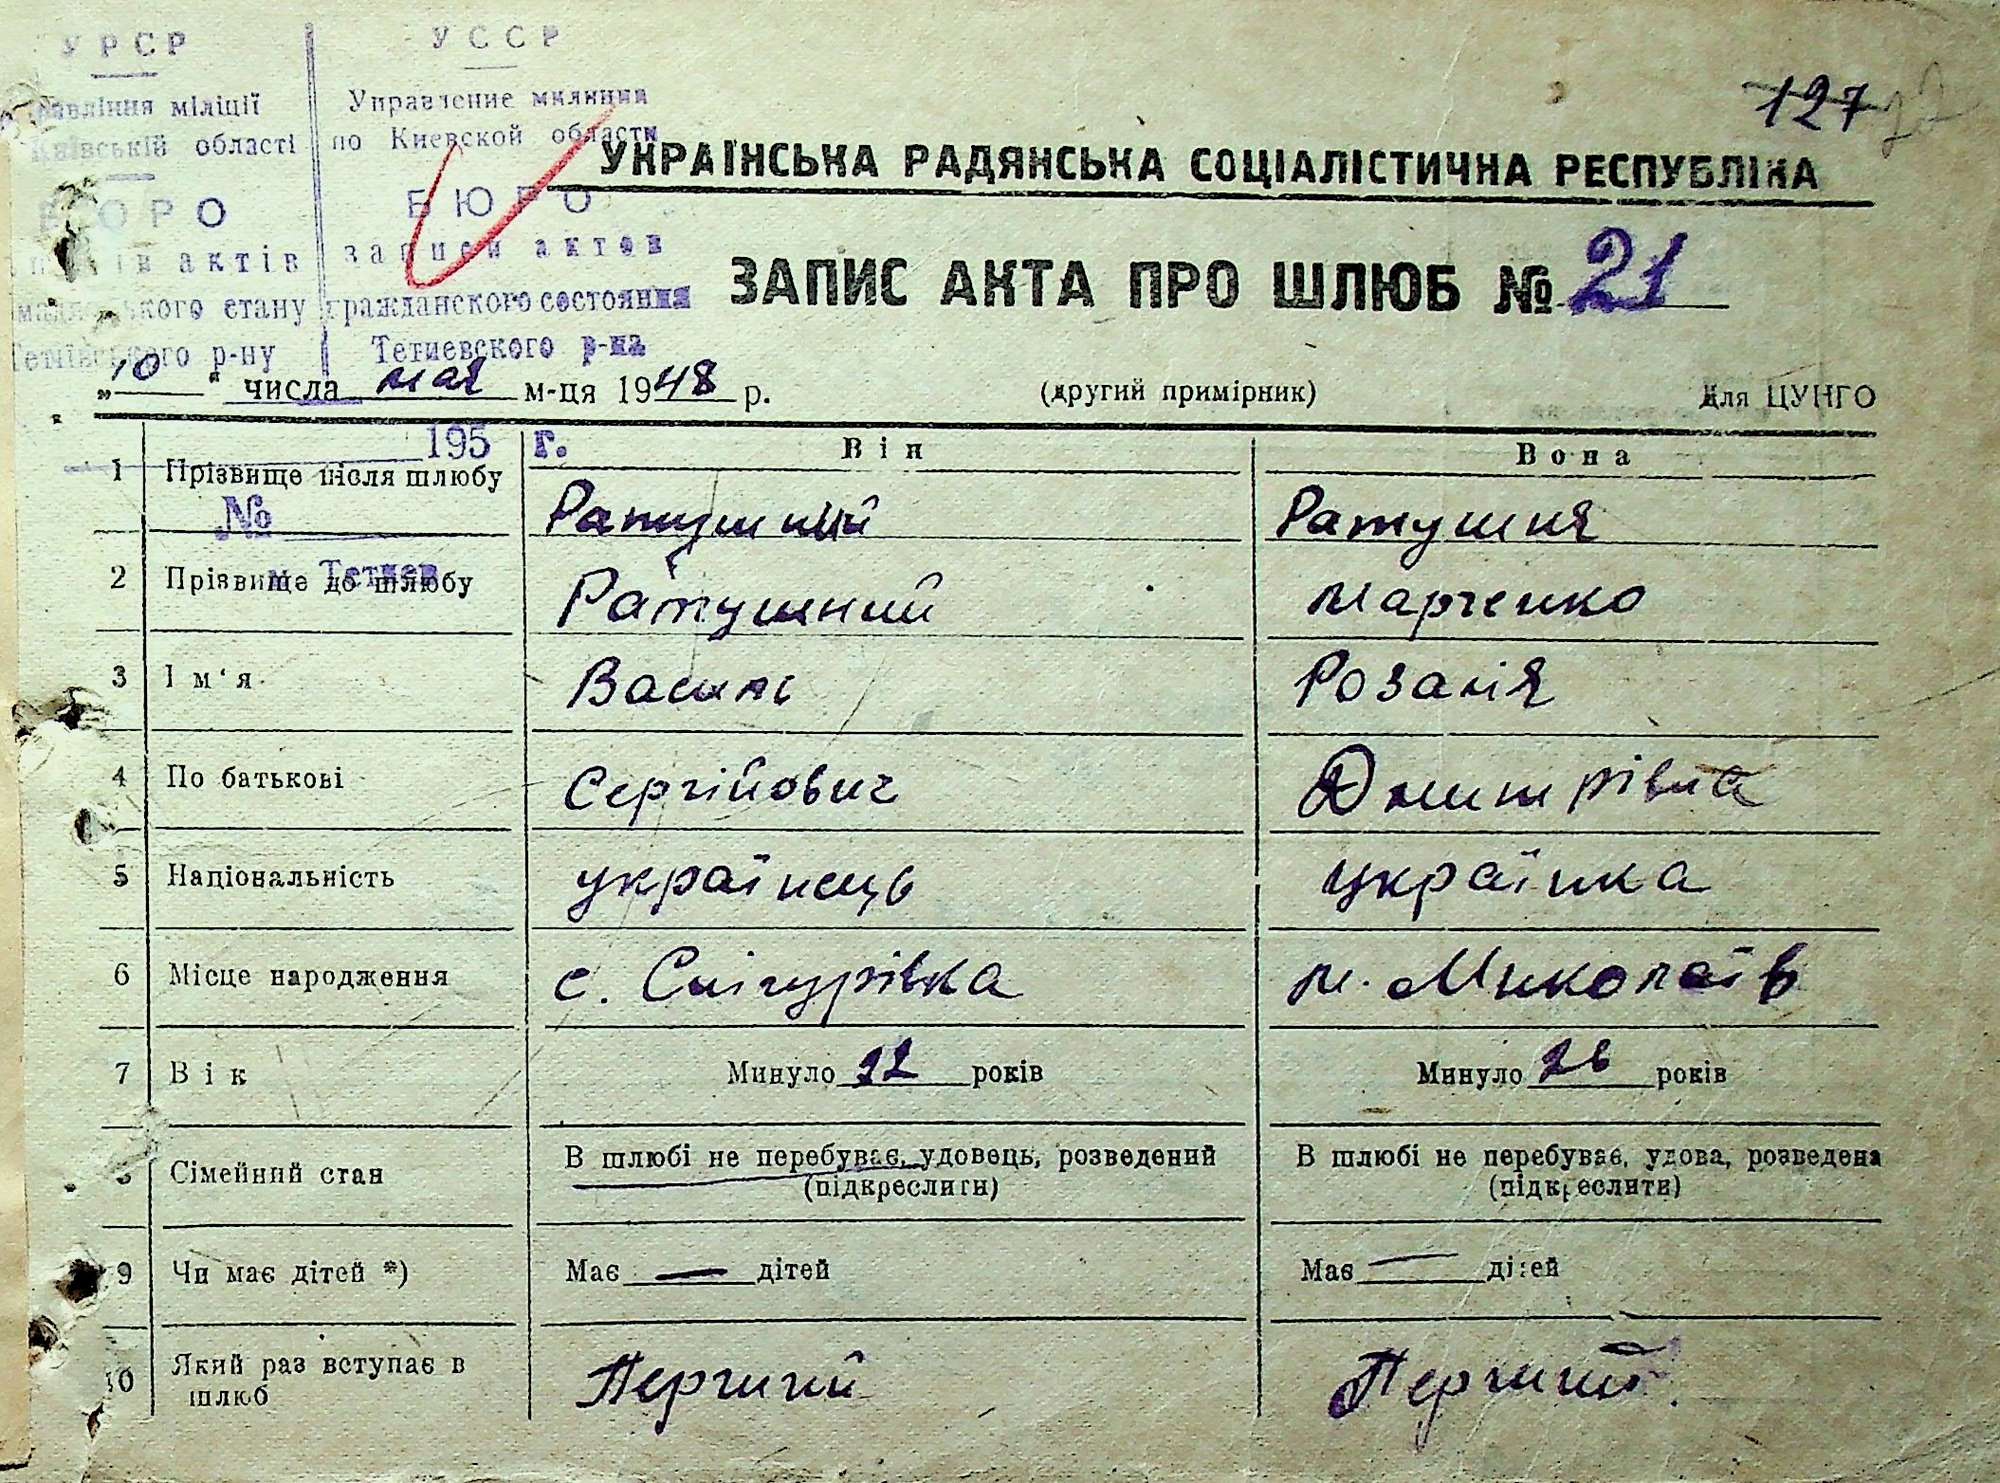 УРСР
УССР
міліції
Управление милиции
Київській області
по Киевской области
БЮРО
БЮРО
актів
записи актов
стану
гражданского состояния
р-ну
Тетиевского р-на
127
УКРАЇНСЬКА РАДЯНСЬКА СОЦІАЛІСТИЧНА РЕСПУБЛІКА
ЗАПИС АКТА ПРО ШЛЮБ № 21
„10“ числа мая м-ця 1948 р.
(другий примірник)
Для ЦУНГО
195 г.
Він
Вона
1 Прізвище після шлюбу
Ратушний
Ратушня
№
2 Прізвище до шлюбу
Ратушний
Марченко
м. Тетиев
3 Ім‘я
Василь
Розалія
4 По батькові
Сергійович
Дмитрівна
5 Національність
українець
українка
6 Місце народження
с. Снігурівка
м. Миколаїв
7 Вік
Минуло 22 років
Минуло 26 років
8 Сімейний стан
В шлюбі не перебуває, удовець, розведений
(підкреслити)
В шлюбі не перебуває, удова, розведена
(підкреслити)
9 Чи має дітей *)
Має — дітей
Має — дітей
10 Який раз вступає в
шлюб
Перший
Перший